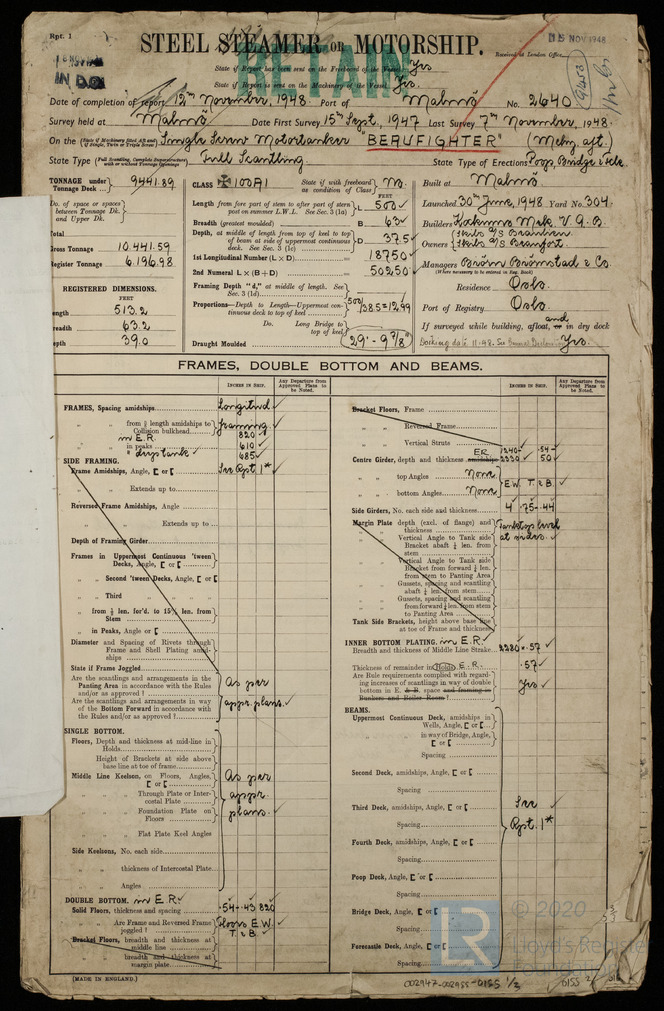 Rpt. 1
STEEL STEAMER OR MOTORSHIP.
RETAIN
NOV 1948
Received at London Office
IN D.O.
State if Report has been sent on the Freeboard of the Vessel Yes
State if Report is sent on the Machinery of the Vessel Yes
Date of completion of report 12th November, 1948. Port of Malmö No. 2640
Survey held at Malmö Date First Survey 15th Sept, 1947 Last Survey 7th November, 1948.
On the (State if Machinery fitted Aft and if Single, Twin or Triple Screw) Single Screw Motortanker "BEAUFIGHTER" (Mchy aft.)
State Type (Full Scantling, Complete Superstructure with or without Tonnage Openings) Full Scantling State Type of Erections Poop, Bridge & Fcle
TONNAGE under Tonnage Deck ... 9441.89
Do. of space or spaces between Tonnage Dk. and Upper Dk.
Total
Gross Tonnage 10,441.59
Register Tonnage 6,196.98
REGISTERED DIMENSIONS.
FEET
Length 513.2
Breadth 63.2
Depth 39.0
CLASS ✠100A1 State if with freeboard as condition of Class No.
FEET
Length from fore part of stem to after part of stern post on summer L.W.L. See Sec. 3 (1a) L 500
Breadth (greatest moulded) B 63
Depth, at middle of length from top of keel to top of beam at side of uppermost continuous deck. See Sec. 3 (1c) D 37.5
1st Longitudinal Number (L × D) 18750
2nd Numeral L × (B + D) 50250
Framing Depth "d," at middle of length. See Sec. 3 (1d)
Proportions—Depth to Length—Uppermost continuous deck to top of keel 500/38.5 = 12.99
Do. Long Bridge to top of keel
Draught Moulded 29' - 9 7/8"
Built at Malmö.
Launched 30th June, 1948 Yard No. 304.
Builders Kockums Mek. V. A. B.
Owners Skibs A/S Beaulieu
Skibs A/S Beaufort
Managers Biørn Biørnstad & Co.
(Where necessary to be entered in Reg. Book)
Residence Oslo.
Port of Registry Oslo.
If surveyed while building, afloat, and in dry dock
Yes.
FRAMES, DOUBLE BOTTOM AND BEAMS.
INCHES IN SHIP.
Any Departure from Approved Plans to be Noted.
FRAMES, Spacing amidships Longitudl
„ „ from ⅗ length amidships to Collision bulkhead framing
in E.R. 820
„ „ in peaks 610
" " deep tank 685
SIDE FRAMING.
Frame Amidships, Angle, [ or [ See Rpt 1*
„ „ Extends up to
Reversed Frame Amidships, Angle
„ „ Extends up to
Depth of Framing Girder
Frames in Uppermost Continuous 'tween Decks, Angle, [ or [
„ „ Second 'tween Decks, Angle, [ or [
„ „ Third „ „ „
„ „ from ⅗ len. for'd. to 15% len. from Stem
„ „ in Peaks, Angle or [
Diameter and Spacing of Rivets through Frame and Shell Plating amidships
State if Frame Joggled
Are the scantlings and arrangements in the Panting Area in accordance with the Rules and/or as approved ? As per
Are the scantlings and arrangements in way of the Bottom Forward in accordance with the Rules and/or as approved ? appr. plans.
SINGLE BOTTOM.
Floors, Depth and thickness at mid-line in Holds
„ Height of Brackets at side above base line at toe of frame
Middle Line Keelson, on Floors, Angles, [ or [ As per
„ „ Through Plate or Intercostal Plate appr.
„ „ Foundation Plate on Floors plans.
„ „ Flat Plate Keel Angles
Side Keelsons, No. each side
„ „ thickness of Intercostal Plate
„ „ Angles
DOUBLE BOTTOM. in E.R.
Solid Floors, thickness and spacing .54-.43 820
„ „ Are Frame and Reversed Frame joggled ? Floors E.W. T. & B.
Bracket Floors, breadth and thickness at middle line
„ „ breadth and thickness at margin plate
[MADE IN ENGLAND.]
INCHES IN SHIP.
Any Departure from Approved Plans to be Noted.
Bracket Floors, Frame
„ „ Reversed Frame
„ „ Vertical Struts
Centre Girder, depth and thickness amidships E.R. 1240- 2330 .54- 50
„ „ top Angles None
„ „ bottom Angles None E.W. T. & B.
Side Girders, No. each side and thickness 4 .75-.44
Margin Plate depth (excl. of flange) and thickness Tanktop level
„ „ Vertical Angle to Tank side Bracket abaft ¼ len. from stem at sides.
„ „ Vertical Angle to Tank side Bracket from forward ¼ len. from stem to Panting Area
„ „ Gussets, spacing and scantling abaft ¼ len. from stem
„ „ Gussets, spacing and scantling from forward ¼ len. from stem to Panting Area
Tank Side Brackets, height above base line at toe of Frame and thickness
INNER BOTTOM PLATING. in E.R.
Breadth and thickness of Middle Line Strake 2330 .57
Thickness of remainder in Holds E.R. .57
Are Rule requirements complied with regarding increases of scantlings in way of double bottom in E. & B. space and framing in Bunkers and Boiler Room ? Yes
BEAMS.
Uppermost Continuous Deck, amidships in Wells, Angle, [ or [
„ „ in way of Bridge, Angle, [ or [
Spacing
Second Deck, amidships, Angle, [ or [
Spacing
Third Deck, amidships, Angle, [ or [ See
Spacing Rpt. 1*
Fourth Deck, amidships, Angle, [ or [
Spacing
Poop Deck, Angle, [ or [
Spacing
Bridge Deck, Angle, [ or [
Spacing
Forecastle Deck, Angle, [ or [
Spacing
LR
© 2020
Lloyd's Register
Foundation
002947-002955-0155 1/2